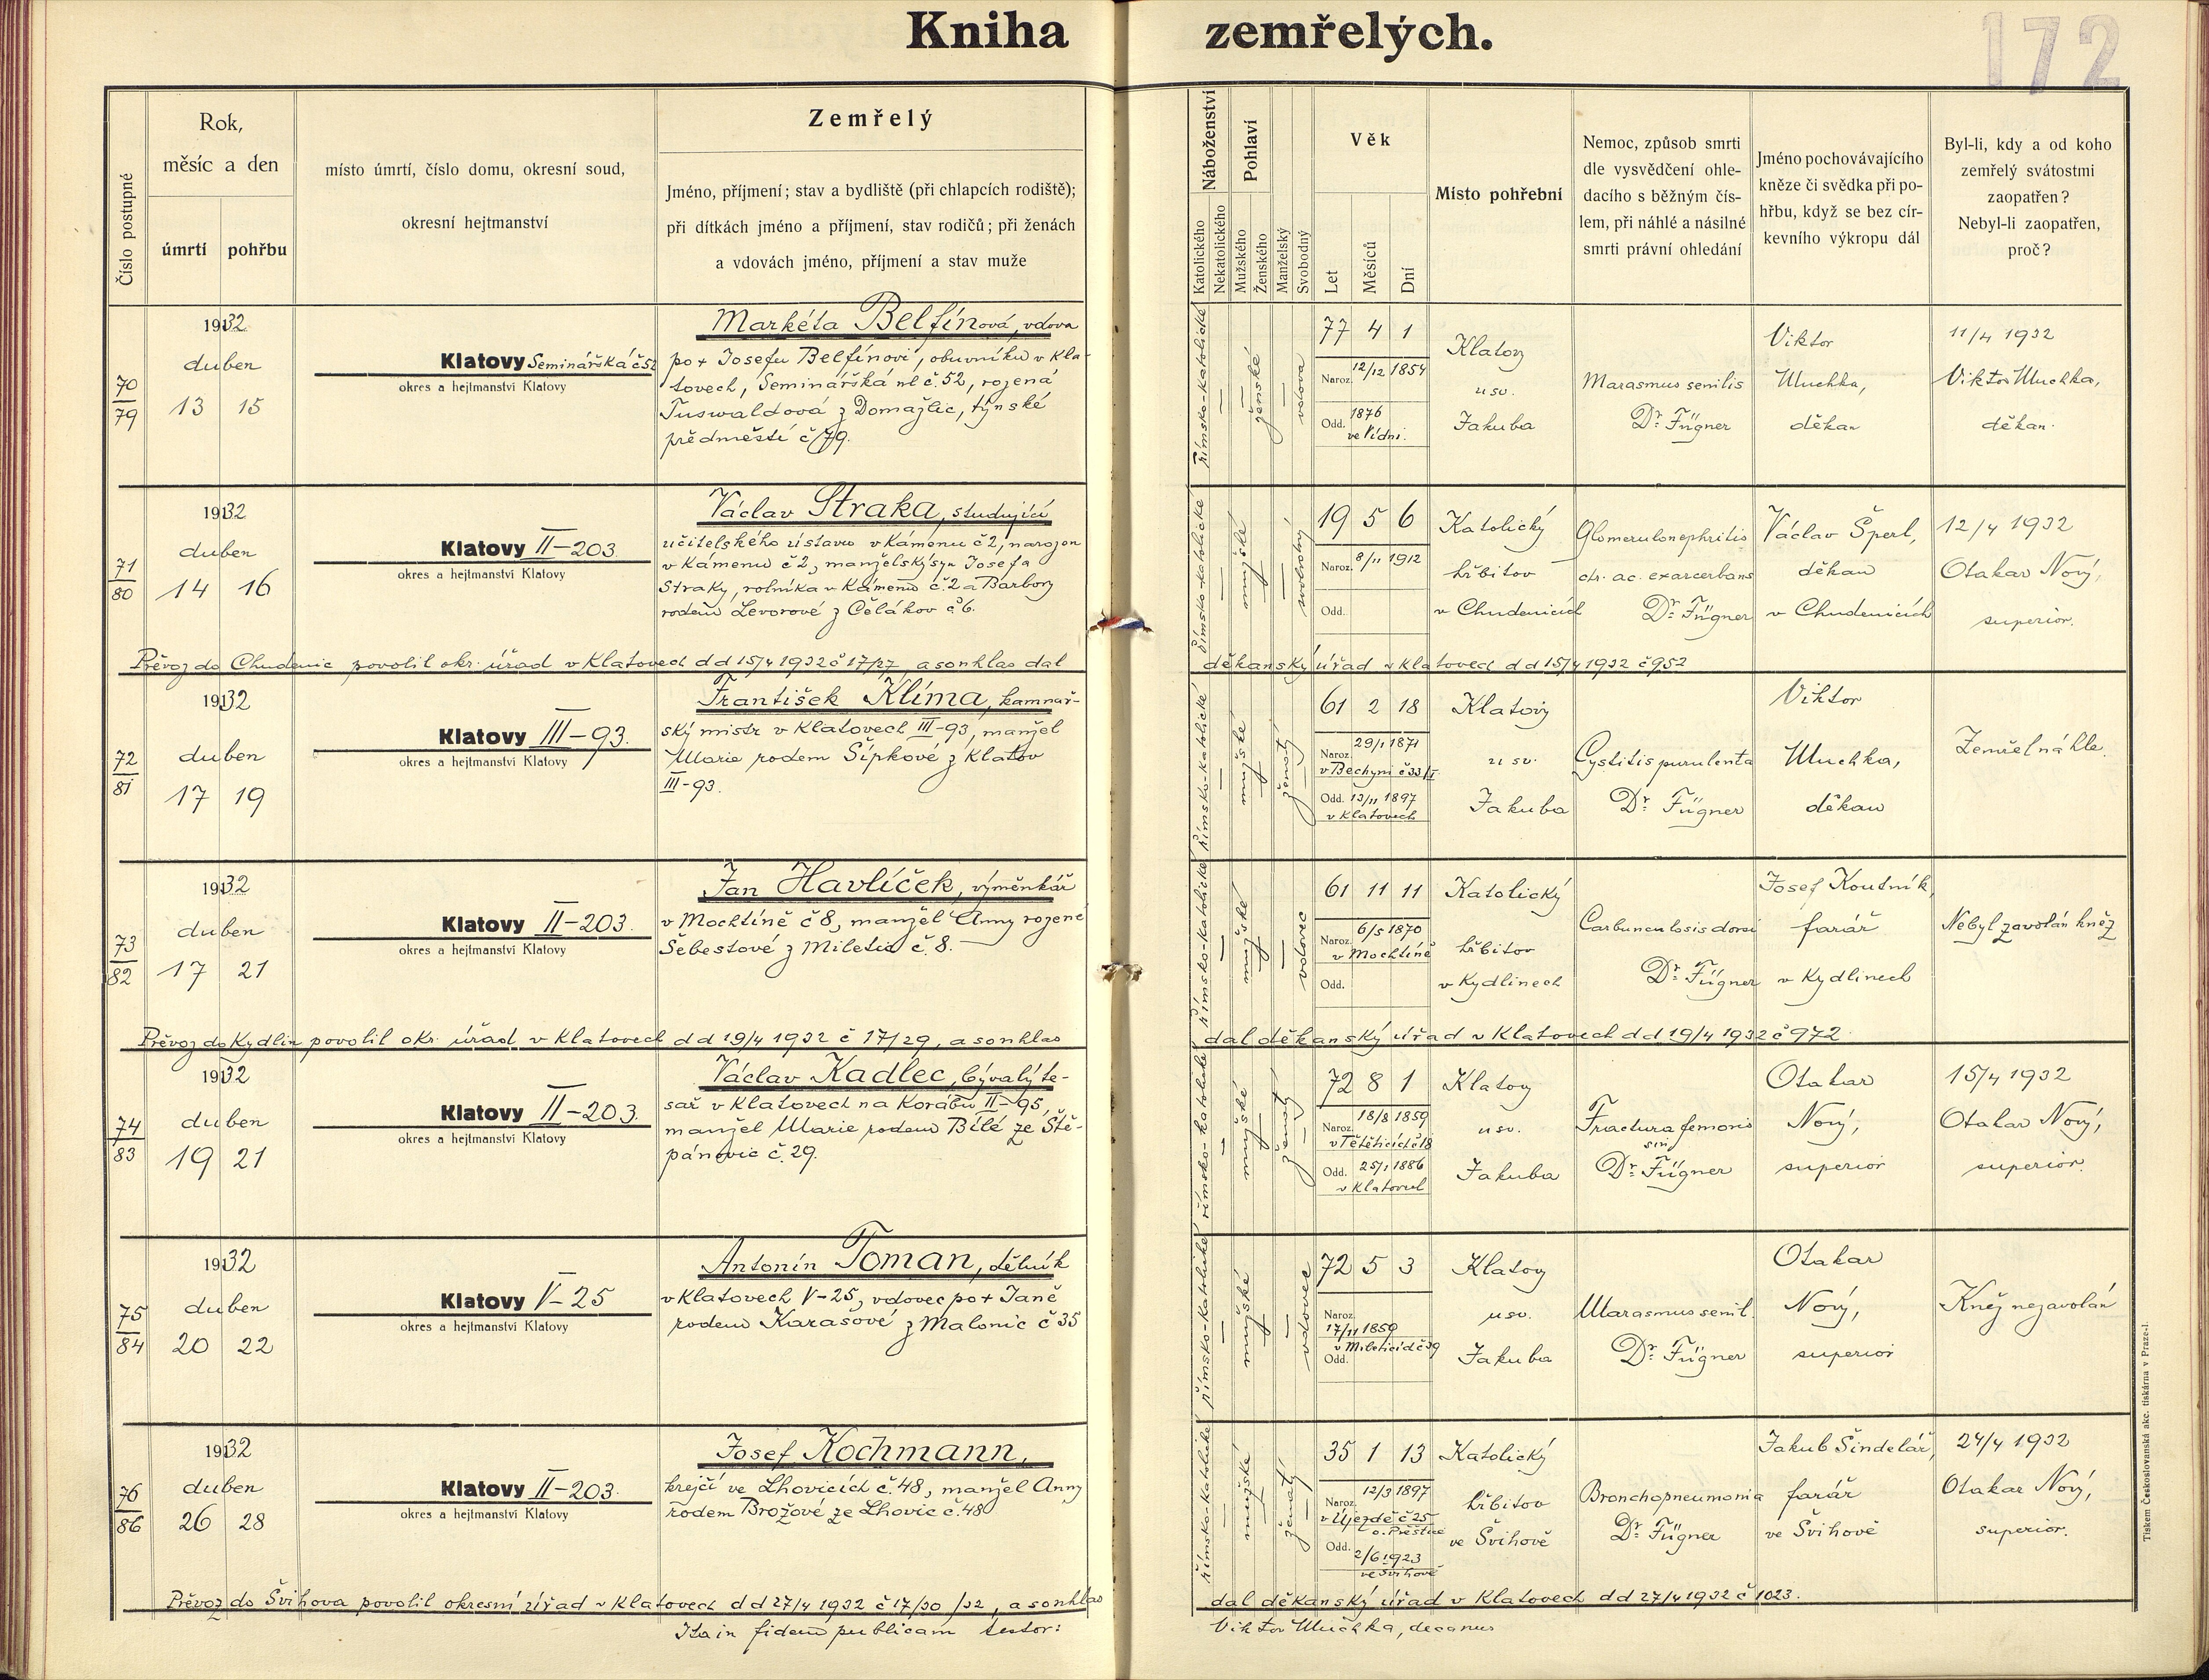 Kniha zemřelých.
172
Číslo postupné
Rok,
měsíc a den
úmrtí
pohřbu
místo úmrtí, číslo domu, okresní soud,
okresní hejtmanství
Zemřelý
Jméno, příjmení; stav a bydliště (při chlapcích rodiště);
při dítkách jméno a příjmení, stav rodičů; při ženách
a vdovách jméno, příjmení a stav muže
Náboženství
Katolického
Nekatolického
Pohlaví
Mužského
Ženského
Manželský
Svobodný
Věk
Let
Měsíců
Dní
Místo pohřební
Nemoc, způsob smrti
dle vysvědčení ohle-
dacího s běžným čís-
lem, při náhlé a násilné
smrti právní ohledání
Jméno pochovávajícího
kněze či svědka při po-
hřbu, když se bez cír-
kevního výkropu dál
Byl-li, kdy a od koho
zemřelý svátostmi
zaopatřen?
Nebyl-li zaopatřen,
proč?
70
79
1932
duben
13 15
Klatovy Seminářská č 52
okres a hejtmanství Klatovy
Markéta Belfínová, vdova
po + Josefu Belfínovi, obuvníku v Kla-
tovech, Seminářská ul č. 52, rozená
Tuswaldová z Domažlic, týnské
předměstí č 79.
římsko-katolické
ženské
vdova
77 4 1
Naroz. 12/12 1854
Odd. 1876
ve Vídni.
Klatovy
u sv.
Jakuba
Marasmus senilis
Dr. Fügner
Viktor
Muchka,
děkan
11/4 1932
Viktor Muchka,
děkan.
71
80
1932
duben
14 16
Klatovy II-203.
okres a hejtmanství Klatovy
Václav Straka, studující
učitelského ústavu v Kámenu č 2, narozen
v Kamenu č 2, manželský syn Josefa
Straky, rolníka v Kámenu č. 2 a Barbory
rodem Levorové z Čělákov č 6.
římsko-katolické
mužské
svobodný
19 5 6
Naroz. 8/11 1912
Odd.
Katolický
hřbitov
v Chudenicích
Glomerulonephritis
chr. ac. exarcerbans
Dr. Fügner
Václav Šperl,
děkan
v Chudenicích
12/4 1932
Otakar Nový,
superior.
Převoz do Chudenic povolil okr. úřad v Klatovech d d 15/4 1932 č 17/27 a souhlas dal
děkanský úřad v Klatovech d d 15/4 1932 č 952
72
81
1932
duben
17 19
Klatovy III-93.
okres a hejtmanství Klatovy
František Klíma, kamnář-
ský mistr v Klatovech III-93, manžel
Marie rodem Šípkové z Klatov
III-93.
římsko-katolické
mužské
ženatý
61 2 18
Naroz. 29/1 1871
v Bechyni č 33/I
Odd. 13/11 1897
v Klatovech
Klatovy
u sv.
Jakuba
Cystitis purulenta
Dr. Fügner
Viktor
Muchka,
děkan
Zemřel náhle.
73
82
1932
duben
17 21
Klatovy II-203.
okres a hejtmanství Klatovy
Jan Havlíček, výměnkář
v Mochtíně č 8, manžel Anny rozené
Šebestové z Miletic č. 8.
římsko-katolické
mužské
vdovec
61 11 11
Naroz. 6/5 1870
v Mochtíně
Odd.
Katolický
hřbitov
v Kydlinech
Carbunculosis dorsi
Dr. Fügner
Josef Koutník,
farář
v Kydlinech
Nebyl zavolán kněz
Převoz do Kydlin povolil okr. úřad v Klatovech d d 19/4 1932 č 17/29, a souhlas
dal děkanský úřad v Klatovech d d 19/4 1932 č 972.
74
83
1932
duben
19 21
Klatovy II-203.
okres a hejtmanství Klatovy
Václav Kadlec, bývalý te-
sař v Klatovech na Korábu II-95,
manžel Marie rodem Bílé ze Ště-
pánovic č. 29.
římsko-katolické
mužské
ženatý
72 8 1
Naroz. 18/8 1859
v Tětěticích č 18
Odd. 25/1 1886
v Klatovech
Klatovy
u sv.
Jakuba
Fractura femoris
sin
Dr. Fügner
Otakar
Nový,
superior
15/4 1932
Otakar Nový,
superior.
75
84
1932
duben
20 22
Klatovy V-25
okres a hejtmanství Klatovy
Antonín Toman, dělník
v Klatovech V-25, vdovec po + Janě
rodem Karašové z Malonic č 35
římsko-katolické
mužské
vdovec
72 5 3
Naroz.
17/11 1859
v Mileticích č 39
Odd.
Klatovy
u sv.
Jakuba
Marasmus senil.
Dr. Fügner
Otakar
Nový,
superior
Kněz nezavolán
76
86
1932
duben
26 28
Klatovy II-203.
okres a hejtmanství Klatovy
Josef Kochmann,
krejčí ve Lhovicích č. 48, manžel Anny
rodem Brožové ze Lhovic č. 48
římsko-katolické
mužské
ženatý
35 1 13
Naroz. 12/3 1897
v Újezdě č 25
o. Přeštice
Odd. 2/6 1923
ve Švihově
Katolický
hřbitov
ve Švihově
Bronchopneumonia
Dr. Fügner
Jakub Šindelář,
farář
ve Švihově
24/4 1932
Otakar Nový,
superior.
Převoz do Švihova povolil okresní úřad v Klatovech d d 27/4 1932 č 17/30 /32, a souhlas
dal děkanský úřad v Klatovech d d 27/4 1932 č 1023.
Ita in fidem publicam testor:
Viktor Muchka, decanus
Tiskem Československá akc. tiskárna v Praze-I.